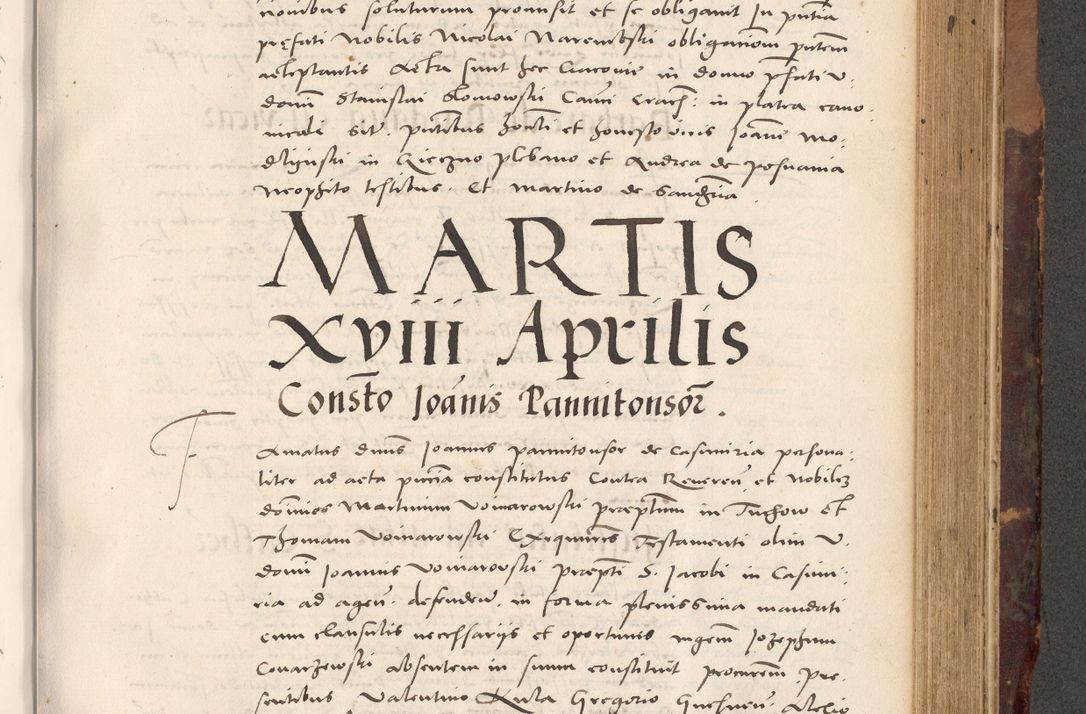 tionibus soluturum promisit et se obligavit In pñtia
prefati Nobilis Nicolai Narembski obligationem putem
acceptantis Acta sunt hec Cracovie in domo pfati V.
domi Stanislai Slomowski Canci Crach: in platea cano-
nicali Sit. pñtibus honesto viris Joanne Mo-
dlignski in Rieczno plebano et Andrea de Posnania
Neophito testibus. Et Martino de
MARTIS
xviii Aprilis
Constõ Joãnis Pannitonsor.
Amatus dnus Joannis pannitonsor de Casimiria persona-
liter ad acta pñtia constitutus Contra Reveren et Nobiles
dominos Martinum Voinarowski præptum in Tuchow et
Thomam Voinarowski Exequtores Testamenti olim V.
domi Joannis Voinarowski præpti S. Jacobi in Casimi-
ria ad agen. defenden. in forma plenissima mandati
cum clausulis necessariis et oportunis ingem Josephum
absentem in suum constituit procurem. Pre-
sentibus Valentino Kula Gregorio